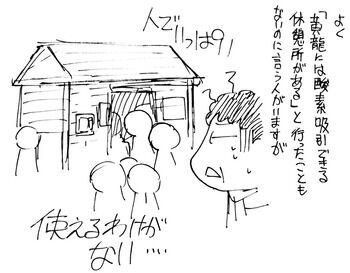 よく
「黄龍には酸素吸引できる
休憩所がある」と行ったことも
ないのに言う人がいますが
人でいっぱい!
使えるわけが
ない…